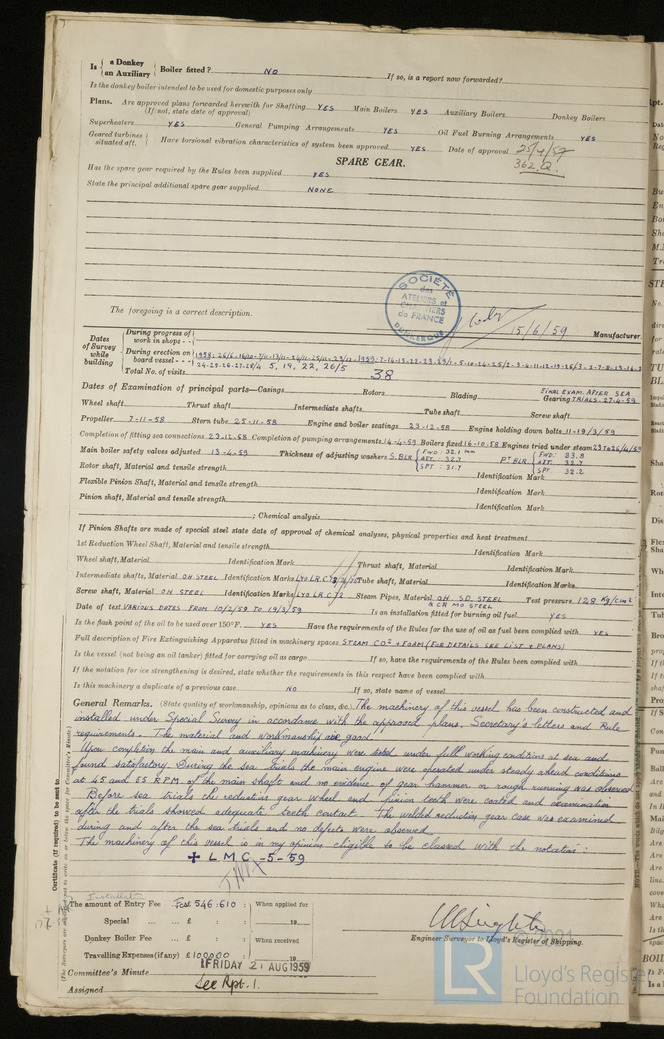 Is { a Donkey / an Auxiliary } Boiler fitted? NO If so, is a report now forwarded?
Is the donkey boiler intended to be used for domestic purposes only
Plans. Are approved plans forwarded herewith for Shafting YES Main Boilers YES Auxiliary Boilers Donkey Boilers
(If not, state date of approval)
Superheaters YES General Pumping Arrangements YES Oil Fuel Burning Arrangements YES
Geared turbines situated aft. } Have torsional vibration characteristics of system been approved YES Date of approval 25/4/57
362.Q.
SPARE GEAR.
Has the spare gear required by the Rules been supplied YES
State the principal additional spare gear supplied NONE
SOCIÉTÉ
des
ATELIERS et
CHANTIERS
de FRANCE
DUNKERQUE
The foregoing is a correct description.
15/6/59 Manufacturer
Dates of Survey while building
During progress of work in shops - -
During erection on board vessel - - -
24-29-26-27-28/4 5, 19, 22, 26/5
Total No. of visits 38
Dates of Examination of principal parts—Casings Rotors Blading Gearing FINAL EXAM. AFTER SEA TRIALS. 27-4-59
Wheel shaft Thrust shaft Intermediate shafts Tube shaft Screw shaft
Propeller 7-11-58 Stern tube 25-11-58 Engine and boiler seatings 23-12-58 Engine holding down bolts 11-19/3/59
Completion of fitting sea connections 23-12-58 Completion of pumping arrangements 14-4-59 Boilers fixed 16-10-58 Engines tried under steam 23 To 26/4/59
Main boiler safety valves adjusted 13-4-59 Thickness of adjusting washers S.BLR { FWD: 32.1 mm AFT: 32.7 SPT: 31.7 PT BLR { FWD: 33.8 AFT: 32.7 SPT: 32.2
Rotor shaft, Material and tensile strength Identification Mark
Flexible Pinion Shaft, Material and tensile strength Identification Mark
Pinion shaft, Material and tensile strength Identification Mark
; Chemical analysis
If Pinion Shafts are made of special steel state date of approval of chemical analyses, physical properties and heat treatment
1st Reduction Wheel Shaft, Material and tensile strength Identification Mark
Wheel shaft, Material Identification Mark Thrust shaft, Material Identification Mark
Intermediate shafts, Material OH STEEL Identification Marks Tube shaft, Material Identification Marks
Screw shaft, Material OH STEEL Identification Marks Steam Pipes, Material OH. SD. STEEL & CR MO STEEL Test pressure 128 Kg/cm²
Date of test VARIOUS DATES FROM 10/2/59 TO 19/3/59 Is an installation fitted for burning oil fuel YES
Is the flash point of the oil to be used over 150°F. YES Have the requirements of the Rules for the use of oil as fuel been complied with YES
Full description of Fire Extinguishing Apparatus fitted in machinery spaces STEAM CO² + FOAM (FOR DETAILS SEE LIST & PLANS)
Is the vessel (not being an oil tanker) fitted for carrying oil as cargo If so, have the requirements of the Rules been complied with
If the notation for ice strengthening is desired, state whether the requirements in this respect have been complied with
Is this machinery a duplicate of a previous case NO If so, state name of vessel
General Remarks. (State quality of workmanship, opinions as to class, &c.) The machinery of this vessel has been constructed and
installed under Special Survey in accordance with the approved plans, Secretary's letters and Rule
requirements. The material and workmanship are good.
Upon completion the main and auxiliary machinery were tested under full working conditions at sea and
found satisfactory. During the sea trials the main engine were operated under steady ahead conditions
at 45 and 55 R.P.M. of the main shaft and no evidence of gear hammer or rough running was observed.
Before sea trials the reduction gear wheel and pinion teeth were coated and examination
after the trials showed adequate teeth contact. The welded reduction gear case was examined
during and after the sea trials and no defects were observed.
The machinery of this vessel is in my opinion eligible to be classed with the notation:
+ L M C -5-59
Certificate (if required) to be sent to
(The Surveyors are requested not to write on or below the space for Committee's Minute.)
The amount of Entry Fee 546.610 When applied for
Special £ 19
Donkey Boiler Fee £ When received
Travelling Expenses (if any) £100000 19
Engineer Surveyor to Lloyd's Register of Shipping.
FRIDAY 21 AUG 1959
Committee's Minute
Assigned See Rpt. 1.
LR
Lloyd's Register
Foundation